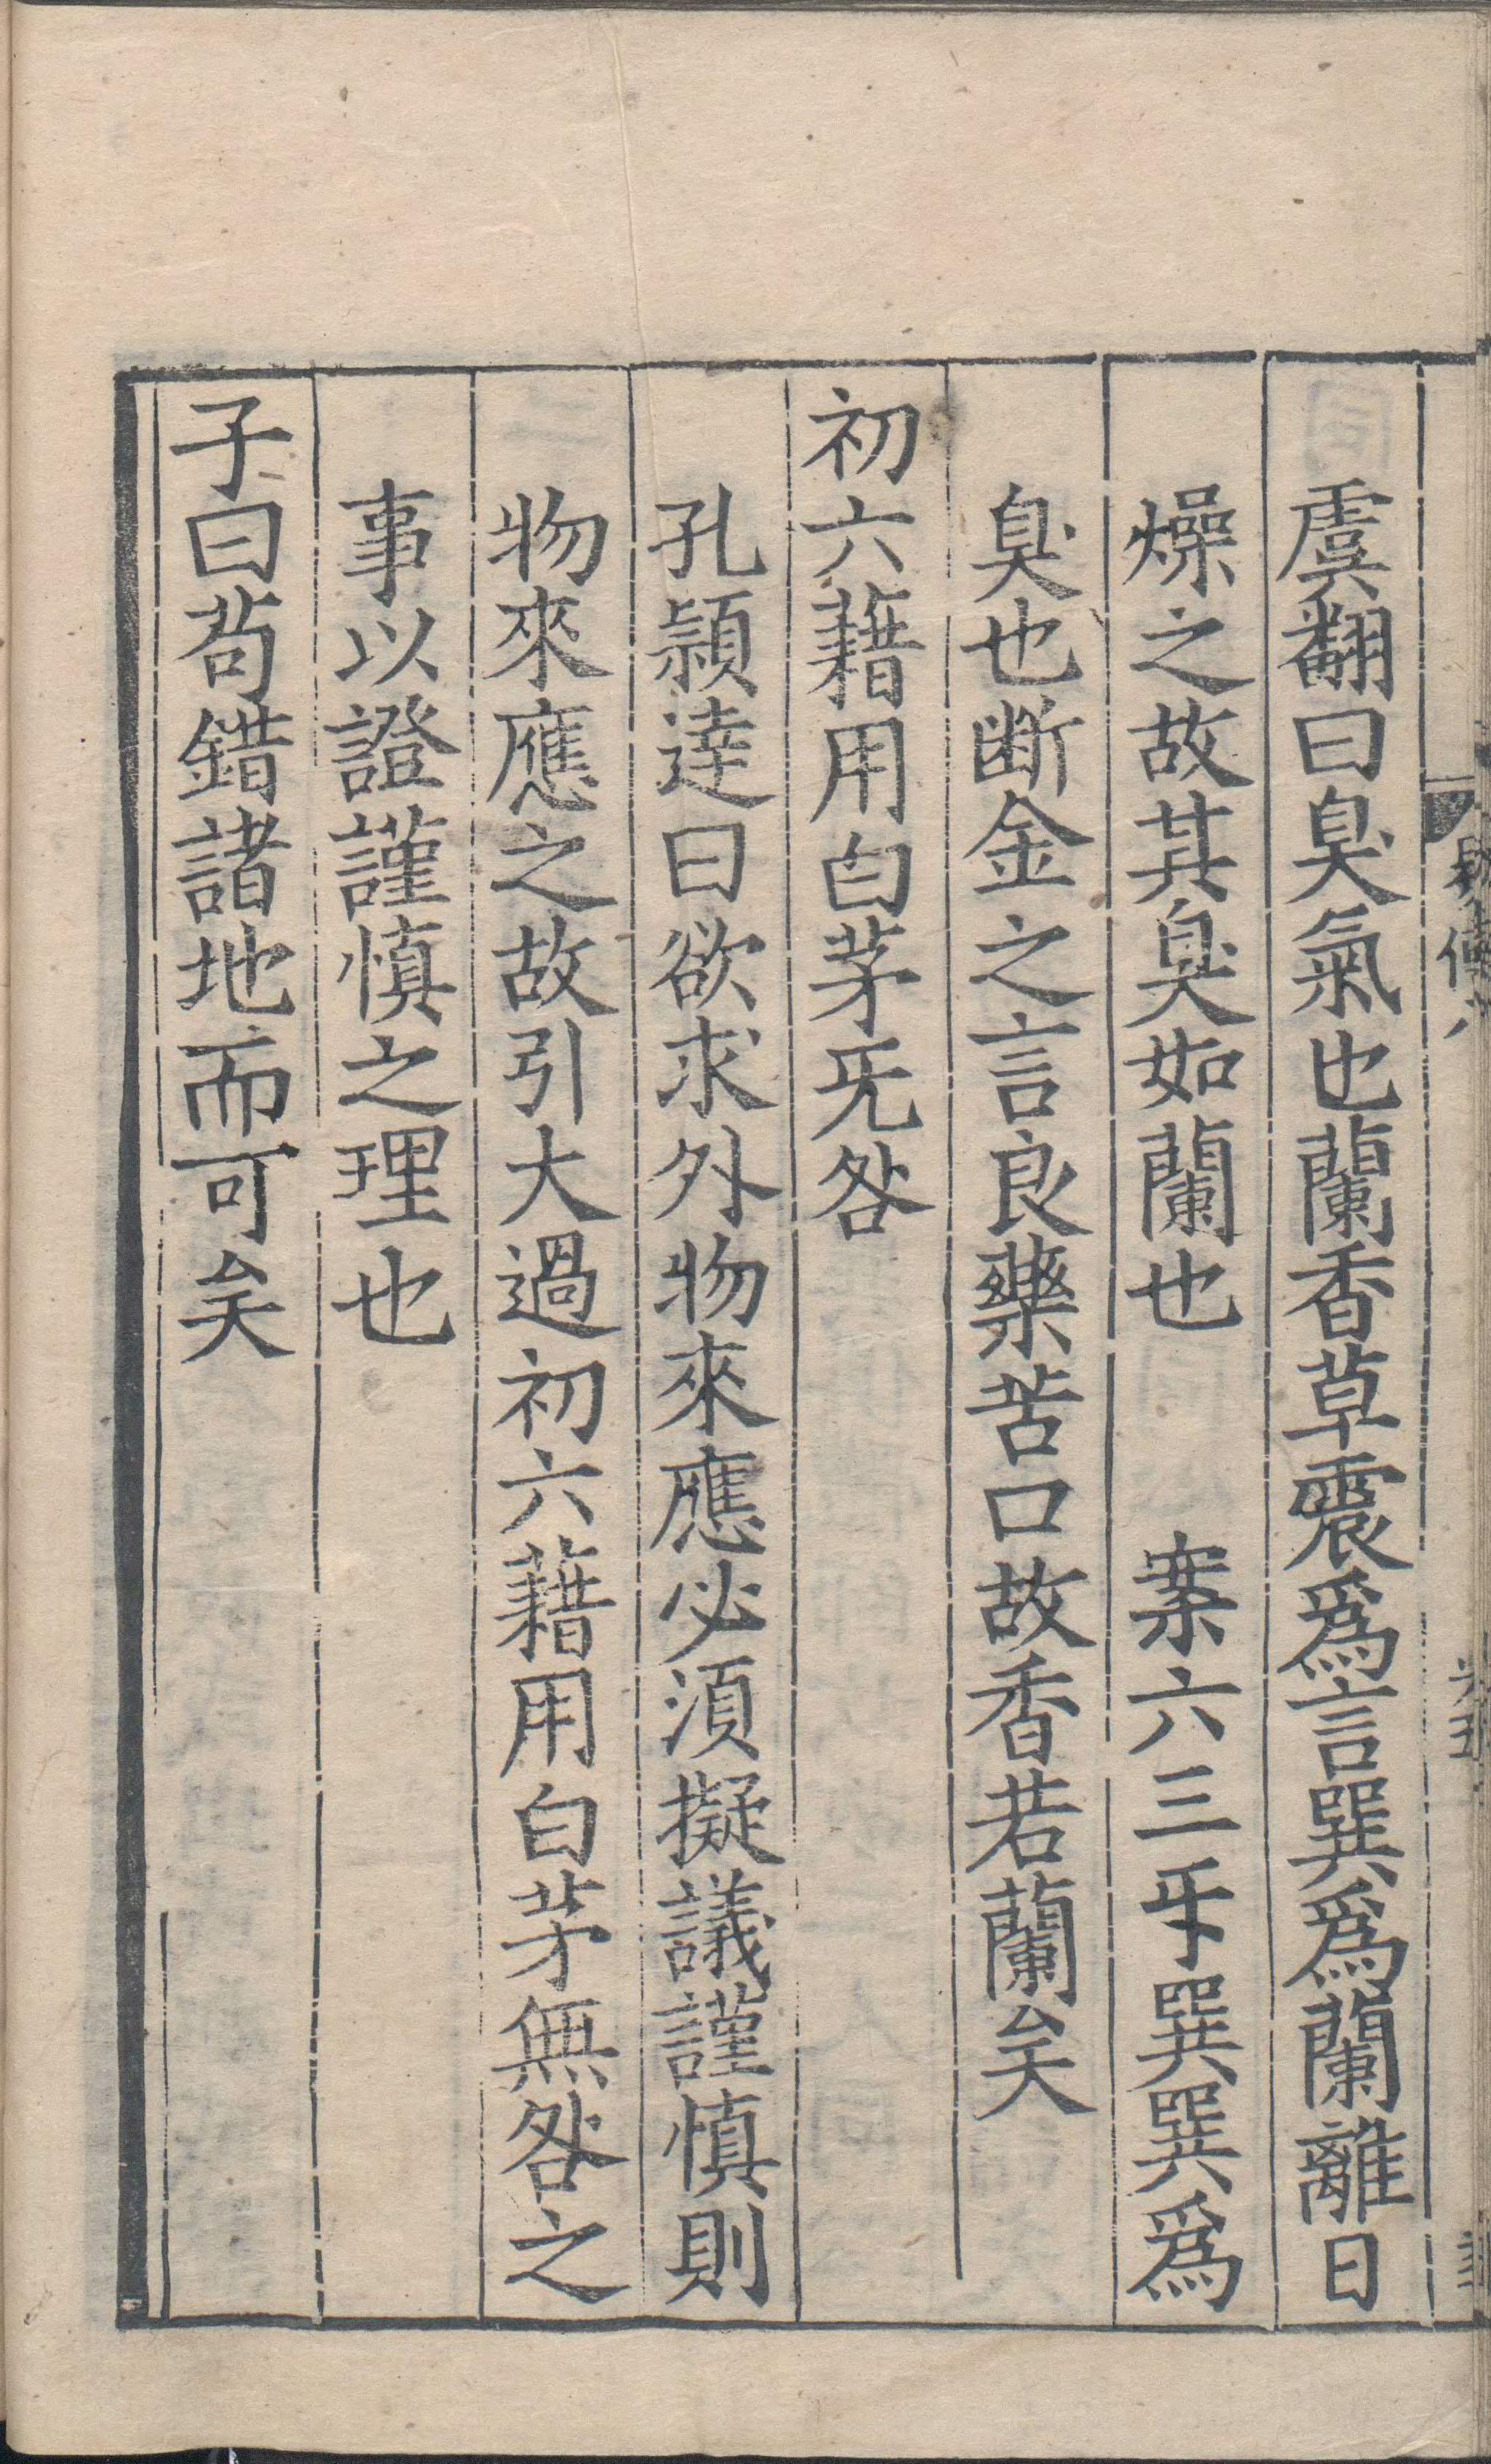 虞翻曰臭氣也蘭香草震爲言巽爲蘭離日
燥之故其臭如蘭也 案六三互巽巽爲
臭也斷金之言良藥苦口故香若蘭矣
初六藉用白茅无咎
孔穎達曰欲求外物來應必須擬議謹慎則
物來應之故引大過初六藉用白茅無咎之
事以證謹慎之理也
子曰苟錯諸地而可矣